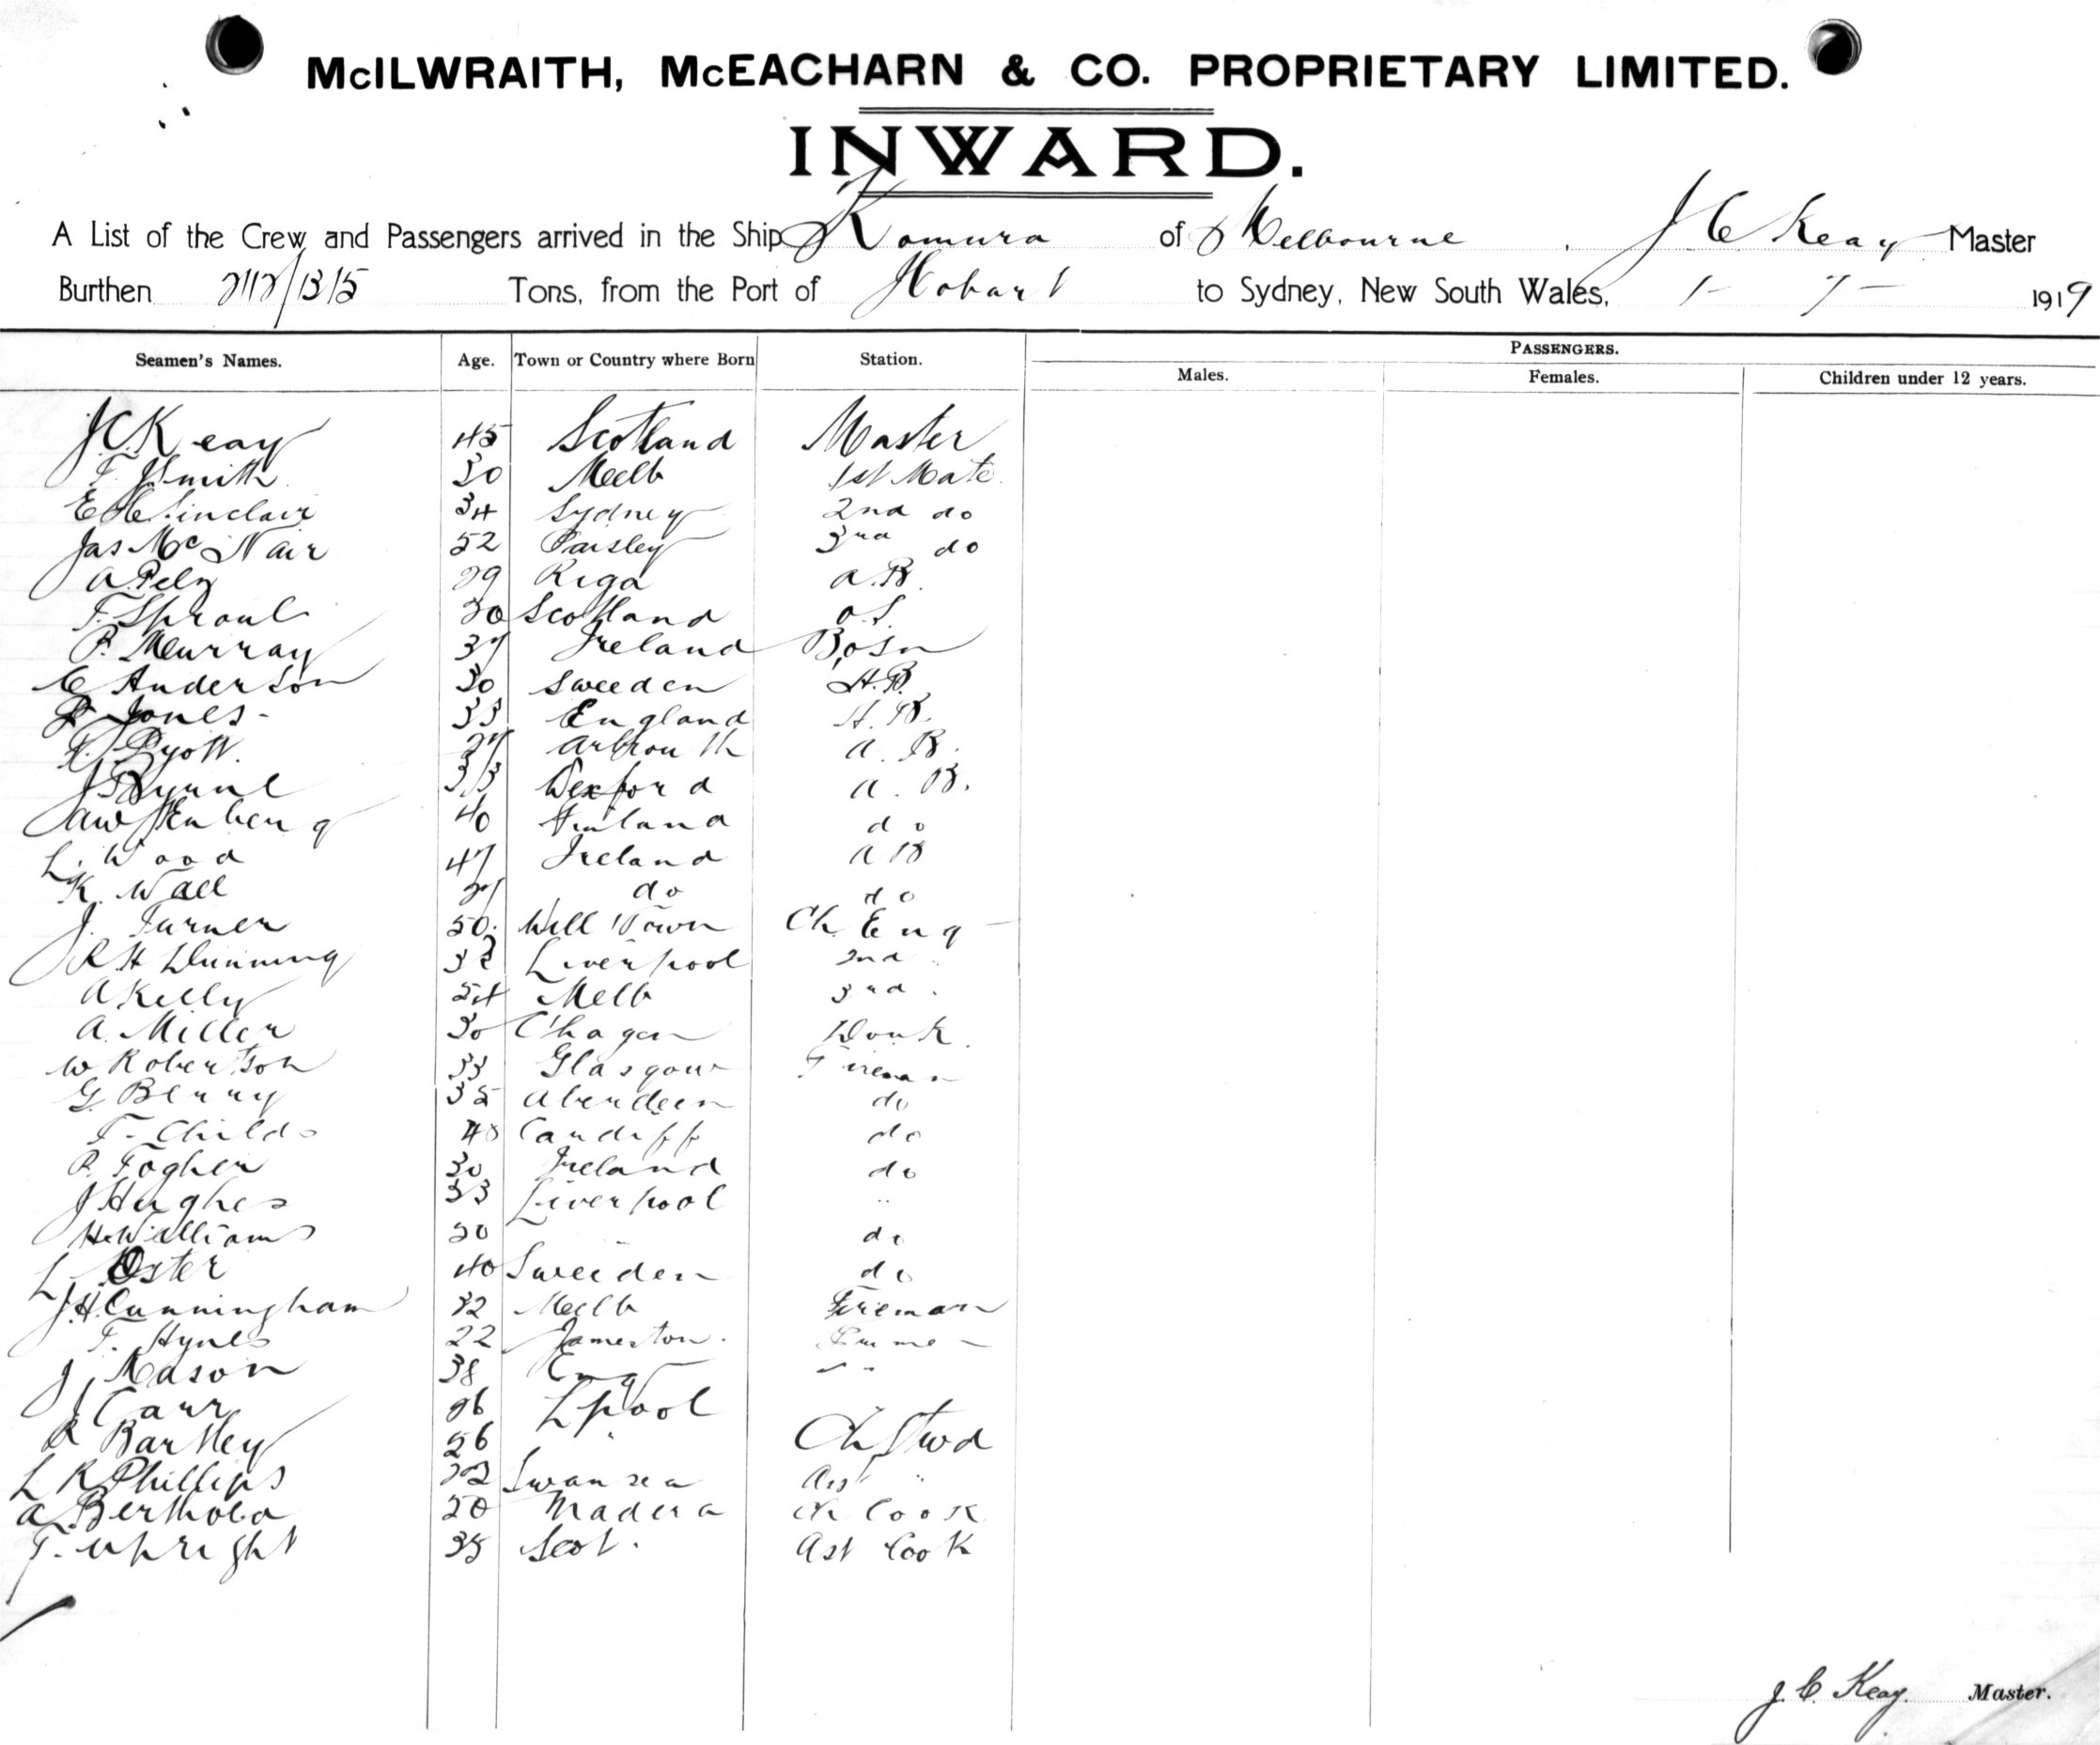 McILWRAITH, McEACHARN & CO. PROPRIETARY LIMITED.
INWARD.
A List of the Crew and Passengers arrived in the Ship Komura of Melbourne, J C Keay Master
Burthen 2112/1315 Tons, from the Port of Hobart to Sydney, New South Wales, 1 - 7 - 1919
Seamen's Names. Age. Town or Country where Born Station. PASSENGERS.
Males. Females. Children under 12 years.
J.C. Keay 45 Scotland Master
F. J. Smith 30 Melb 1st Mate
E H Sinclair 34 Sydney 2nd do
Jas Mc Nair 52 Paisley 3rd do
A. Pely 29 Riga A.B.
F. Sproul 20 Scotland o.S.
P. Murray 37 Ireland Bosn
C Anderson 30 Sweeden A.B.
Jones - 33 England A.B.
Pyott. 27 Arbroath A.B.
J Byrne 33 Wexford A.B.
40 Finland do
L. Wood 47 Ireland AB
K. Wall 27 do do
J. Turner 50. Will Town Ch. Eng
R H Dunning 32 Liverpool 2nd
A Kelly 54 Melb 3rd.
A. Miller 30 C'hagen Donk.
W Robertson 33 Glasgow Fireman
G. Benny 35 Aberdeen do
F. Childs 48 Cardiff do
P. Fogher 30 Ireland do
J Hughes 33 Liverpool "
H. Williams 20 " do
L. Oster 40 Sweeden do
J.H. Cunningham 32 Melb Fireman
T. Hynes 22 Jameston. Trimmer
J. Mason 38 Eng " "
J Carr 26 Lpool
R Bartley 26 " Ch Stwd
L R Phillips 22 Swansea Ast "
A. Berthold 20 Madera Ch Cook
T. Upright 35 Scot. Ast Cook
J. C. Keay. Master.